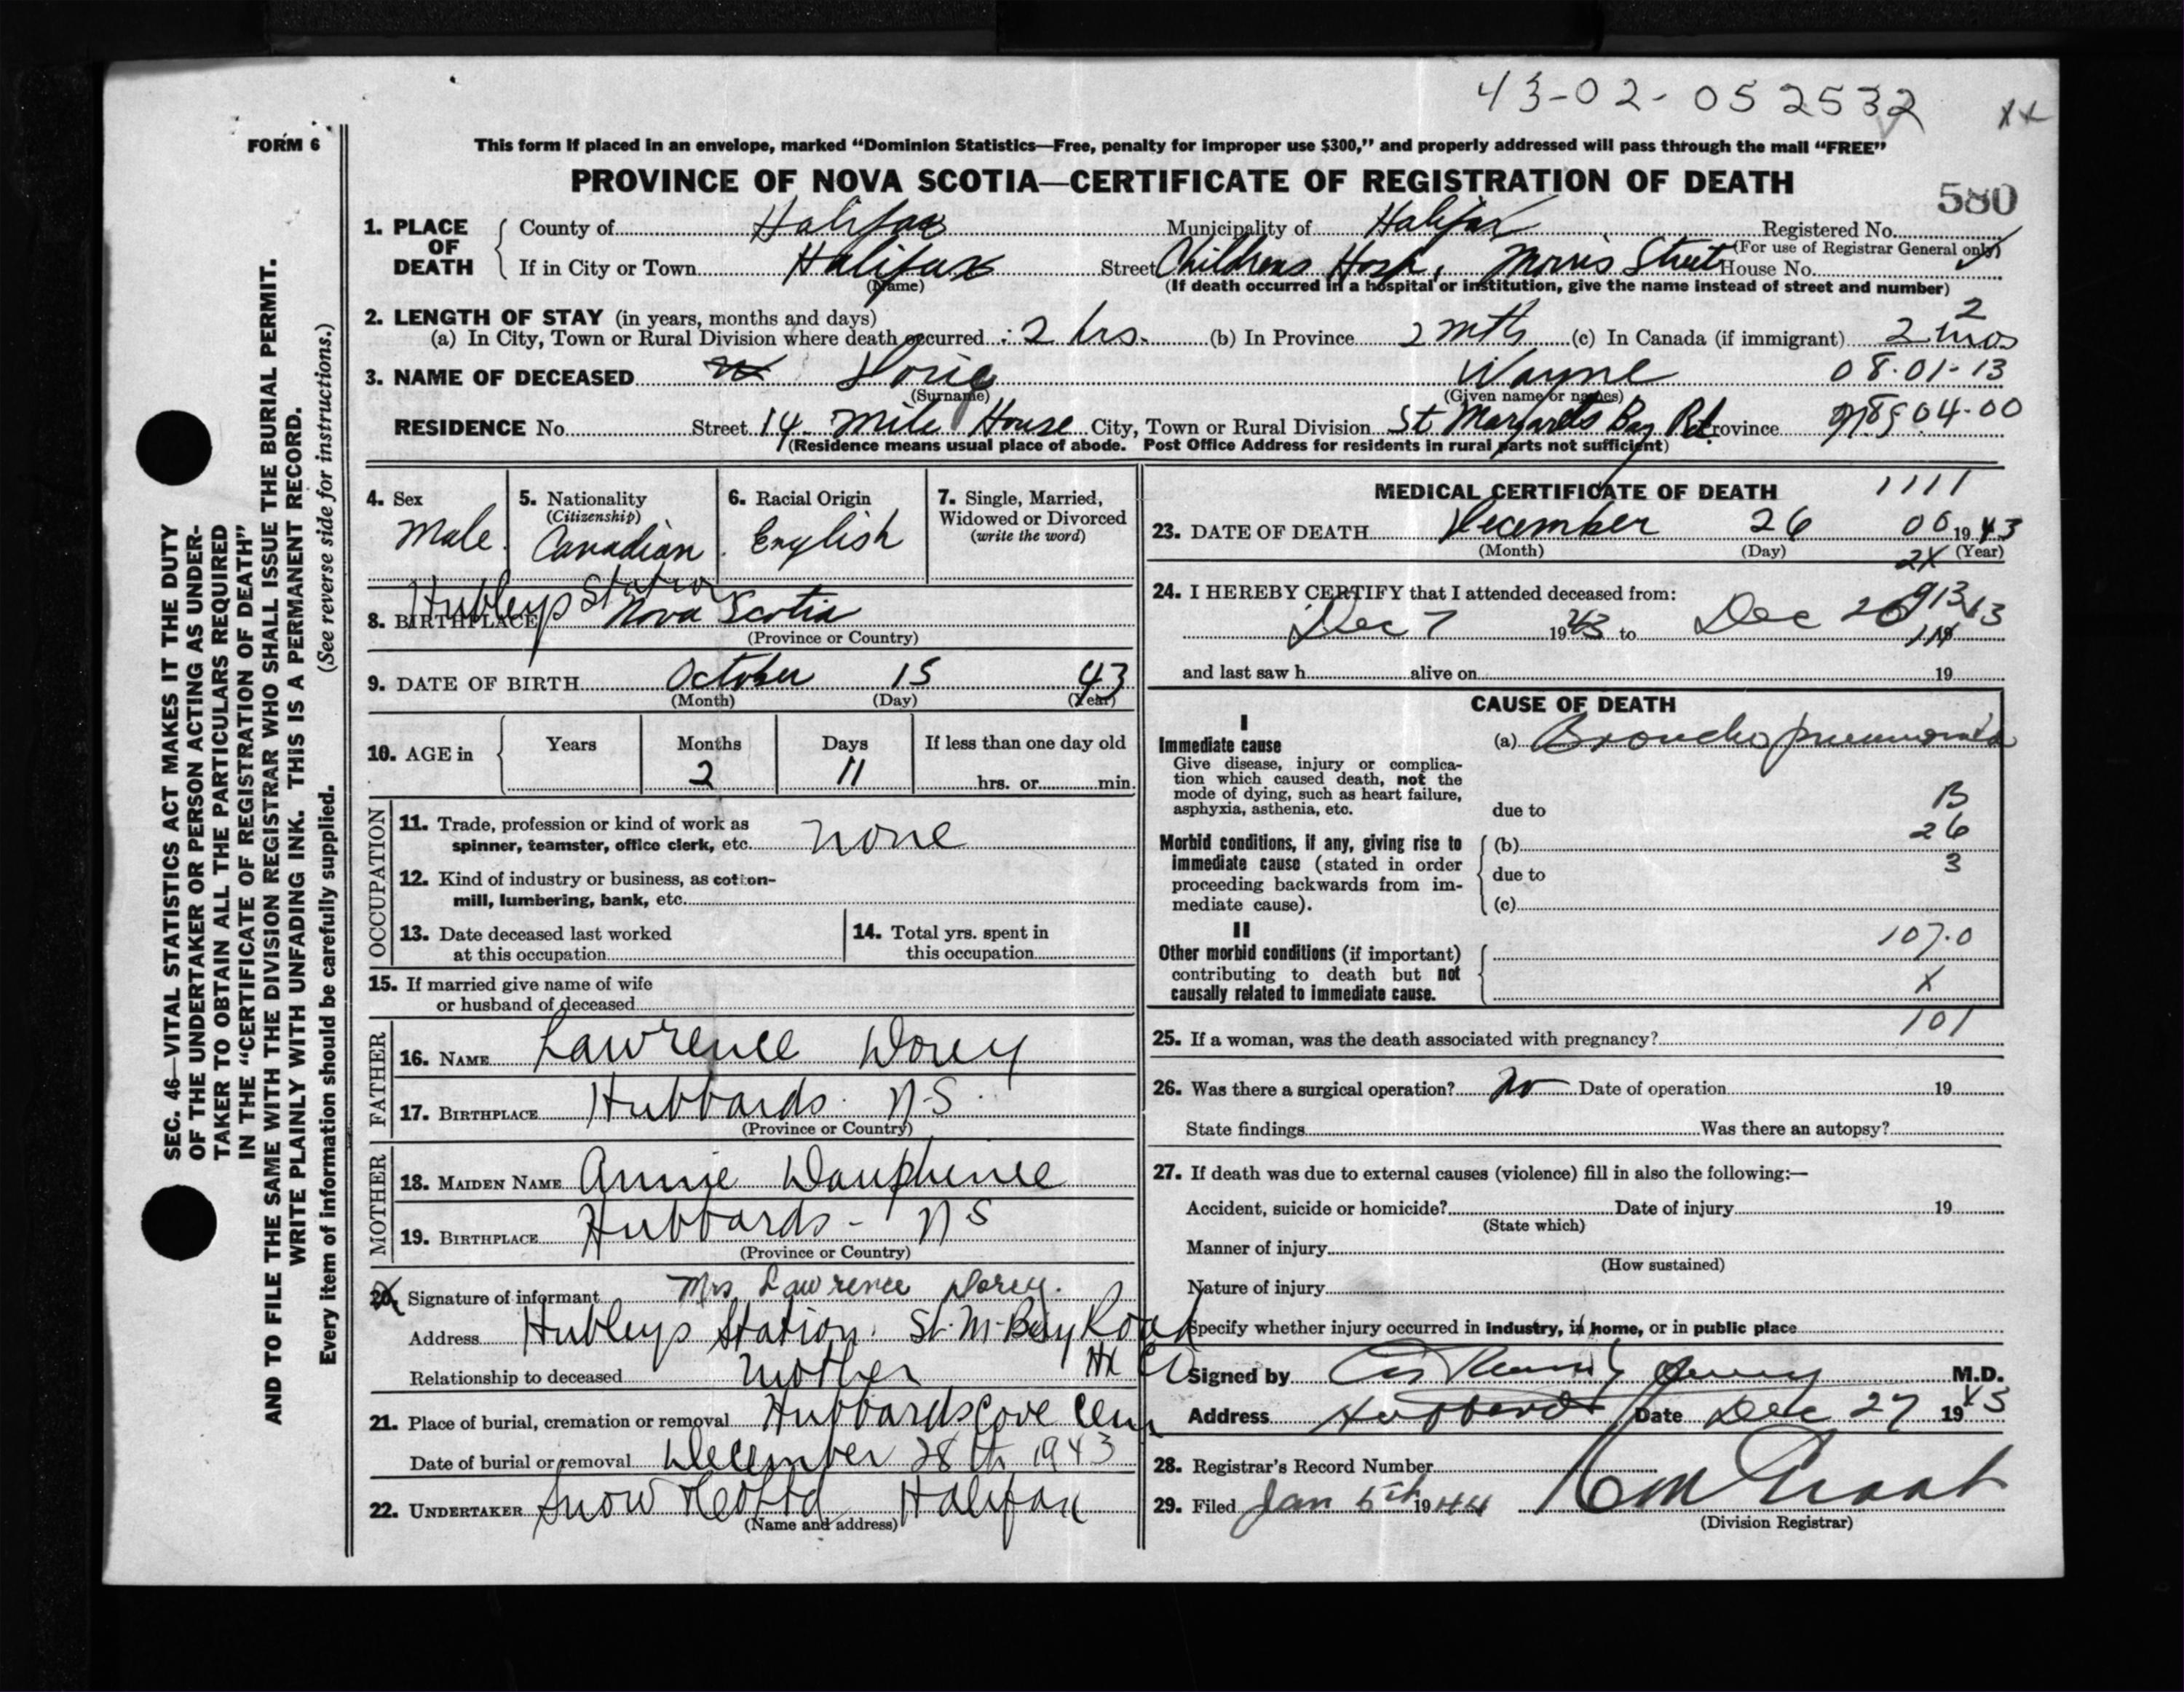 43-02-052532 XX
FORM 6
This form if placed in an envelope, marked “Dominion Statistics—Free, penalty for improper use $300,” and properly addressed will pass through the mail “FREE”
PROVINCE OF NOVA SCOTIA—CERTIFICATE OF REGISTRATION OF DEATH
580
1. PLACE OF DEATH
County of Halifax Municipality of Halifax Registered No.
(For use of Registrar General only)
If in City or Town Halifax Street Childrens Hosp, Morris Street House No.
(Name) (If death occurred in a hospital or institution, give the name instead of street and number)
2. LENGTH OF STAY (in years, months and days) 2
(a) In City, Town or Rural Division where death occurred 2 hrs. (b) In Province 2 mths (c) In Canada (if immigrant) 2 mos
3. NAME OF DECEASED Dorie Wayne 08.01-13
(Surname) (Given name or names)
RESIDENCE No. Street 14 Mile House City, Town or Rural Division St Margarets Bay Rd. Province 04-00
(Residence means usual place of abode. Post Office Address for residents in rural parts not sufficient)
4. Sex
Male
5. Nationality
(Citizenship)
Canadian
6. Racial Origin
English
7. Single, Married, Widowed or Divorced
(write the word)
Hubleys Station
8. BIRTHPLACE Nova Scotia
(Province or Country)
9. DATE OF BIRTH October 15 43
(Month) (Day) (Year)
10. AGE in
Years Months Days If less than one day old
2 11 hrs. or min.
OCCUPATION
11. Trade, profession or kind of work as
spinner, teamster, office clerk, etc. none
12. Kind of industry or business, as cotton-
mill, lumbering, bank, etc.
13. Date deceased last worked
at this occupation
14. Total yrs. spent in
this occupation
15. If married give name of wife
or husband of deceased
FATHER
16. NAME Lawrence Dorey
17. BIRTHPLACE Hubbards. N.S.
(Province or Country)
MOTHER
18. MAIDEN NAME Annie Dauphinee
19. BIRTHPLACE Hubbards - NS
(Province or Country)
20. Signature of informant Mrs Lawrence Dorey.
Address Hubleys Station. St. M-Bay Road
Hx Co
Relationship to deceased Mother
21. Place of burial, cremation or removal Hubbards Cove Cem
Date of burial or removal December 28th 1943
22. UNDERTAKER Snow & Co Ltd Halifax
(Name and address)
MEDICAL CERTIFICATE OF DEATH 1111
23. DATE OF DEATH December 26 06 1943
(Month) (Day) 2X (Year)
24. I HEREBY CERTIFY that I attended deceased from:
Dec 7 1943 to Dec 26
and last saw h alive on 19
CAUSE OF DEATH
I
Immediate cause
Give disease, injury or complica-
tion which caused death, not the
mode of dying, such as heart failure,
asphyxia, asthenia, etc.
(a) Bronchopneumonia
due to B
26
Morbid conditions, if any, giving rise to
immediate cause (stated in order
proceeding backwards from im-
mediate cause).
(b)
due to 3
(c)
II
Other morbid conditions (if important)
contributing to death but not
causally related to immediate cause.
107.0
X
101
25. If a woman, was the death associated with pregnancy?
26. Was there a surgical operation? no Date of operation 19
State findings Was there an autopsy?
27. If death was due to external causes (violence) fill in also the following:—
Accident, suicide or homicide? Date of injury 19
(State which)
Manner of injury
(How sustained)
Nature of injury
Specify whether injury occurred in industry, in home, or in public place
Signed by M.D.
Address Hubbards Date Dec 27 1943
28. Registrar's Record Number
29. Filed Jan 5th 1944
(Division Registrar)
SEC. 46—VITAL STATISTICS ACT MAKES IT THE DUTY
OF THE UNDERTAKER OR PERSON ACTING AS UNDER-
TAKER TO OBTAIN ALL THE PARTICULARS REQUIRED
IN THE “CERTIFICATE OF REGISTRATION OF DEATH”
AND TO FILE THE SAME WITH THE DIVISION REGISTRAR WHO SHALL ISSUE THE BURIAL PERMIT.
WRITE PLAINLY WITH UNFADING INK. THIS IS A PERMANENT RECORD.
Every item of information should be carefully supplied. (See reverse side for instructions.)